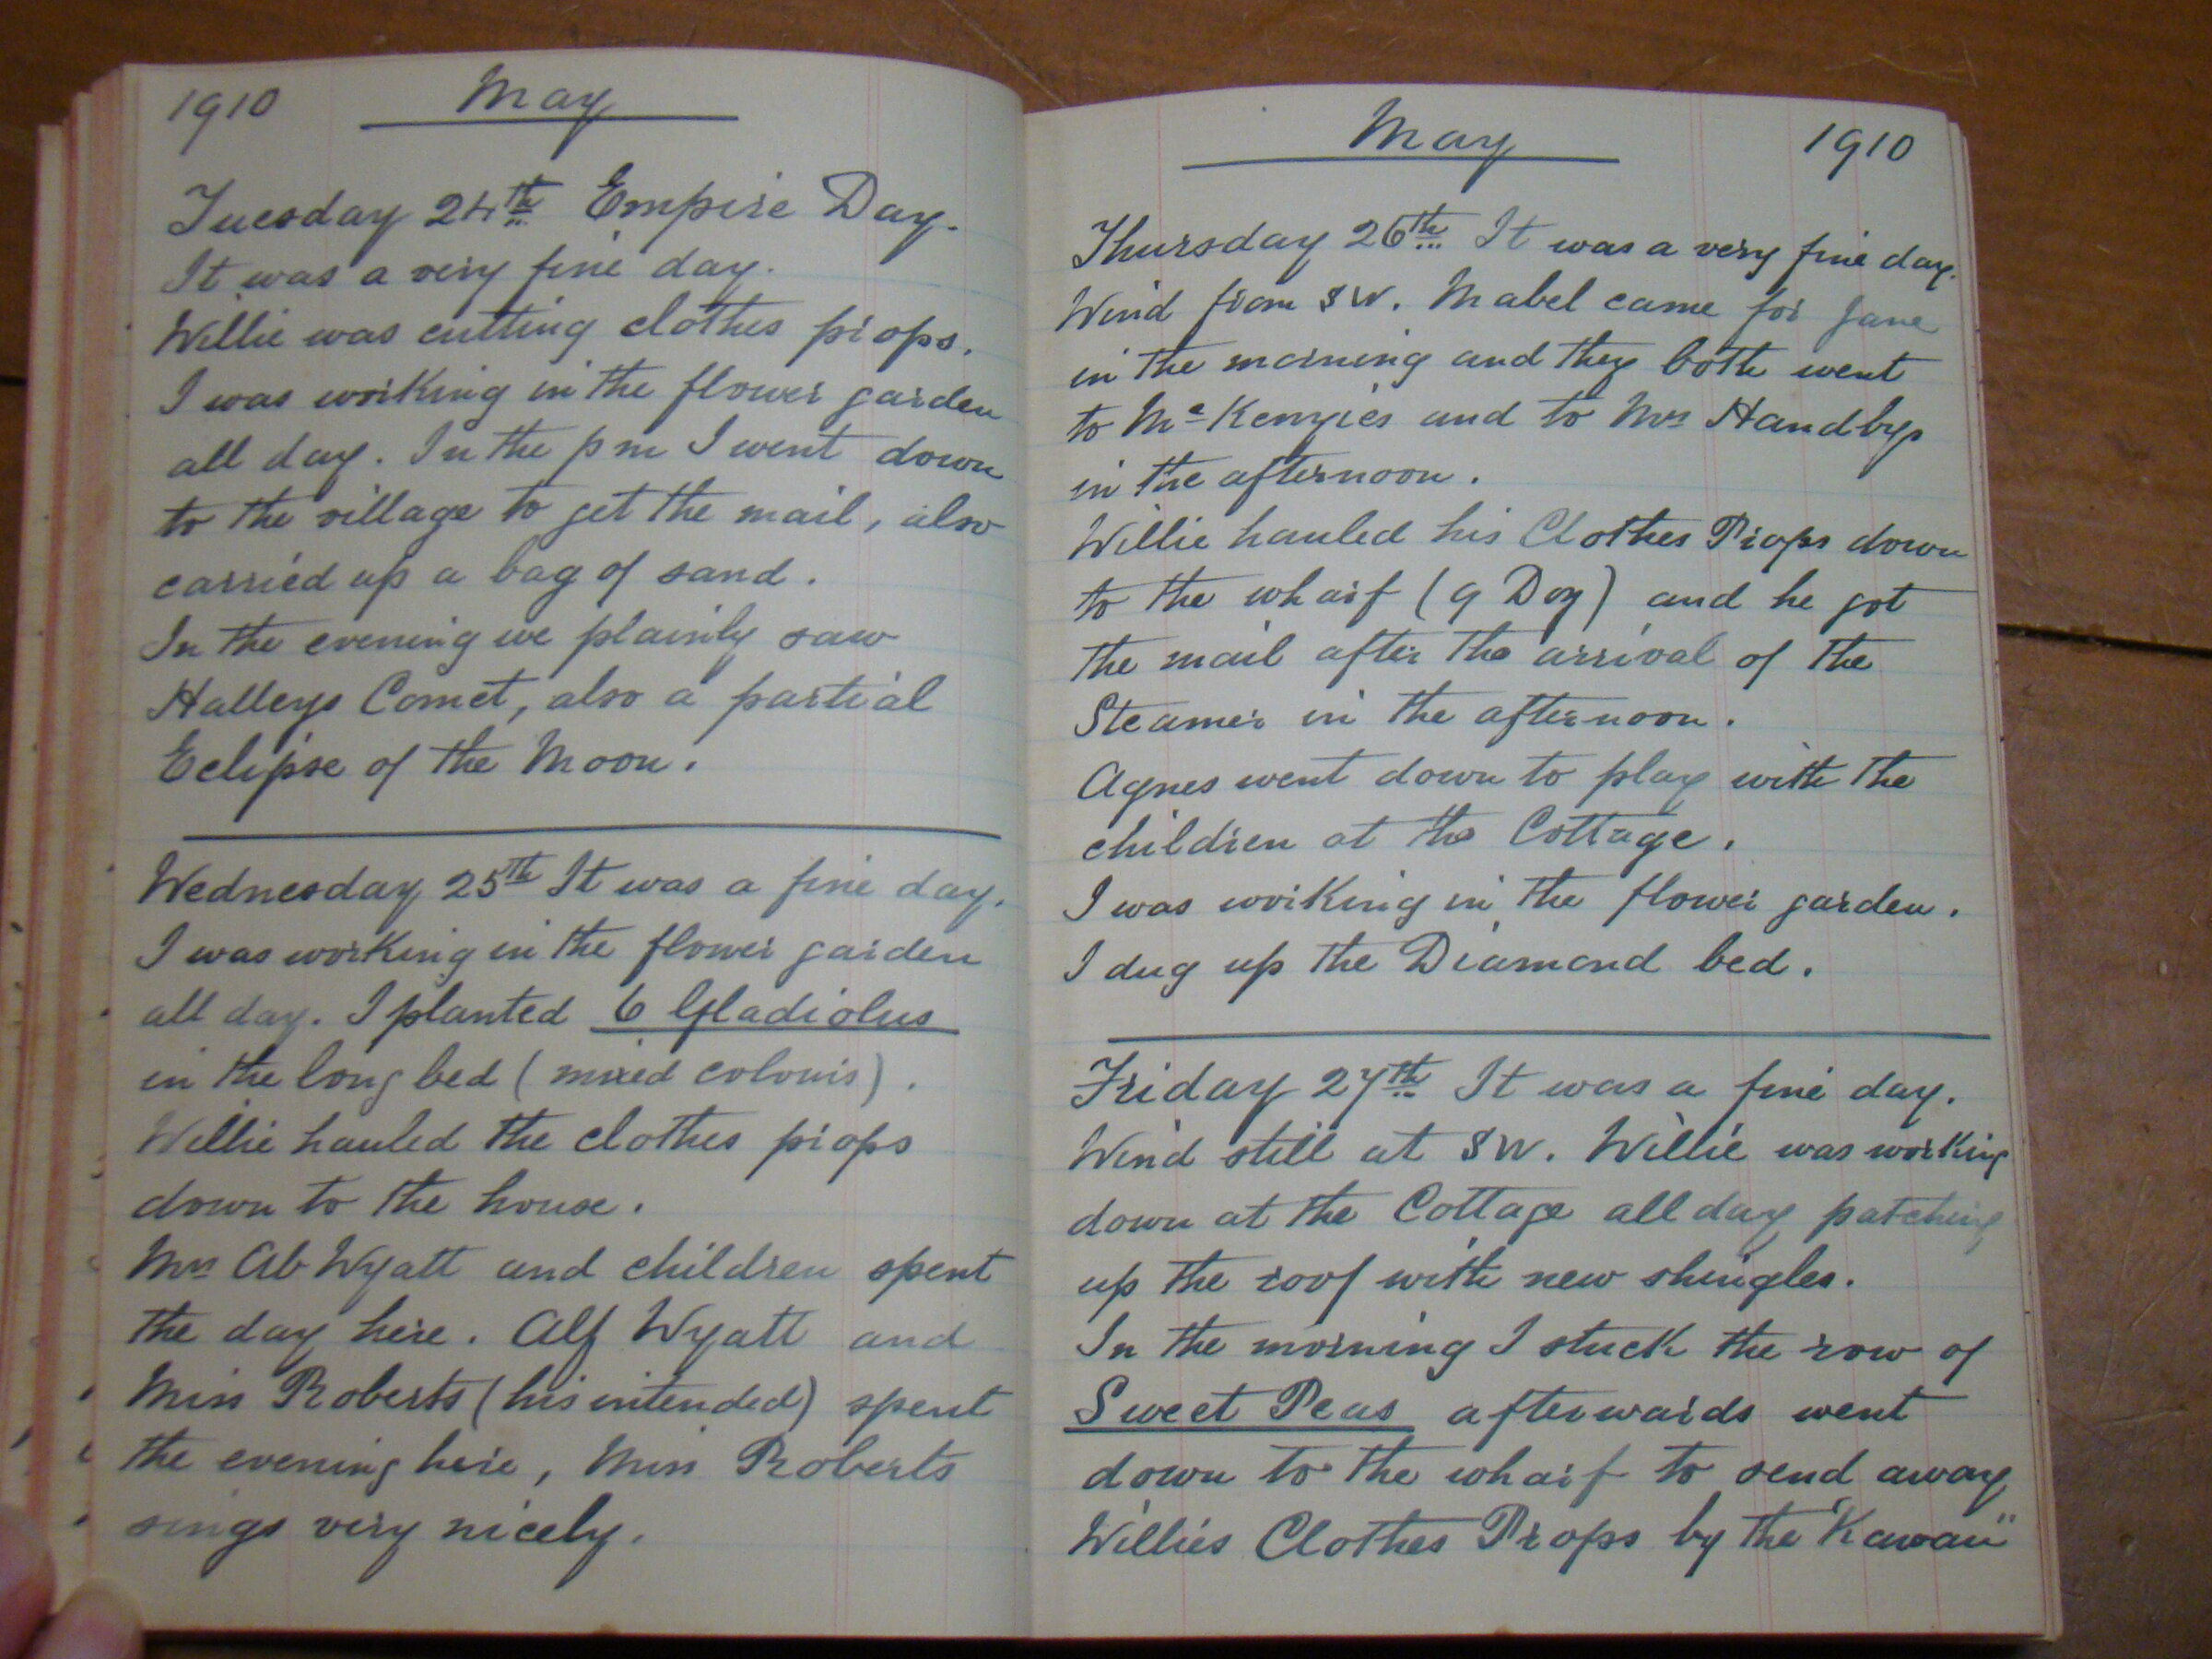 1910 May
Tuesday 24th Empire Day.
It was a very fine day.
Willie was cutting clothes props.
I was working in the flower garden
all day. In the pm I went down
to the village to get the mail, also
carried up a bag of sand.
In the evening we plainly saw
Halleys Comet, also a partial
Eclipse of the Moon.
Wednesday 25th It was a fine day.
I was working in the flower garden
all day. I planted 6 Gladiolus
in the long bed (mixed colours).
Willie hauled the clothes props
down to the house.
Mrs Ab Wyatt and children spent
the day here. Alf Wyatt and
Miss Roberts (his intended) spent
the evening here, Miss Roberts
sings very nicely.
May 1910
Thursday 26th It was a very fine day.
Wind from SW. Mabel came for Jane
in the morning and they both went
to McKenzies and to Mrs Handbys
in the afternoon.
Willie hauled his Clothes Props down
to the wharf (9 Doz) and he got
the mail after the arrival of the
Steamer in the afternoon.
Agnes went down to play with the
children at the Cottage.
I was working in the flower garden.
I dug up the Diamond bed.
Friday 27th It was a fine day.
Wind still at SW. Willie was working
down at the Cottage all day patching
up the roof with new shingles.
In the morning I stuck the row of
Sweet Peas afterwards went
down to the wharf to send away
Willies Clothes Props by the "Kawau"